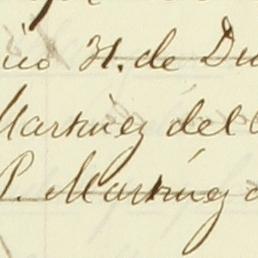 H. de Du
Martinez del
P. Martinez